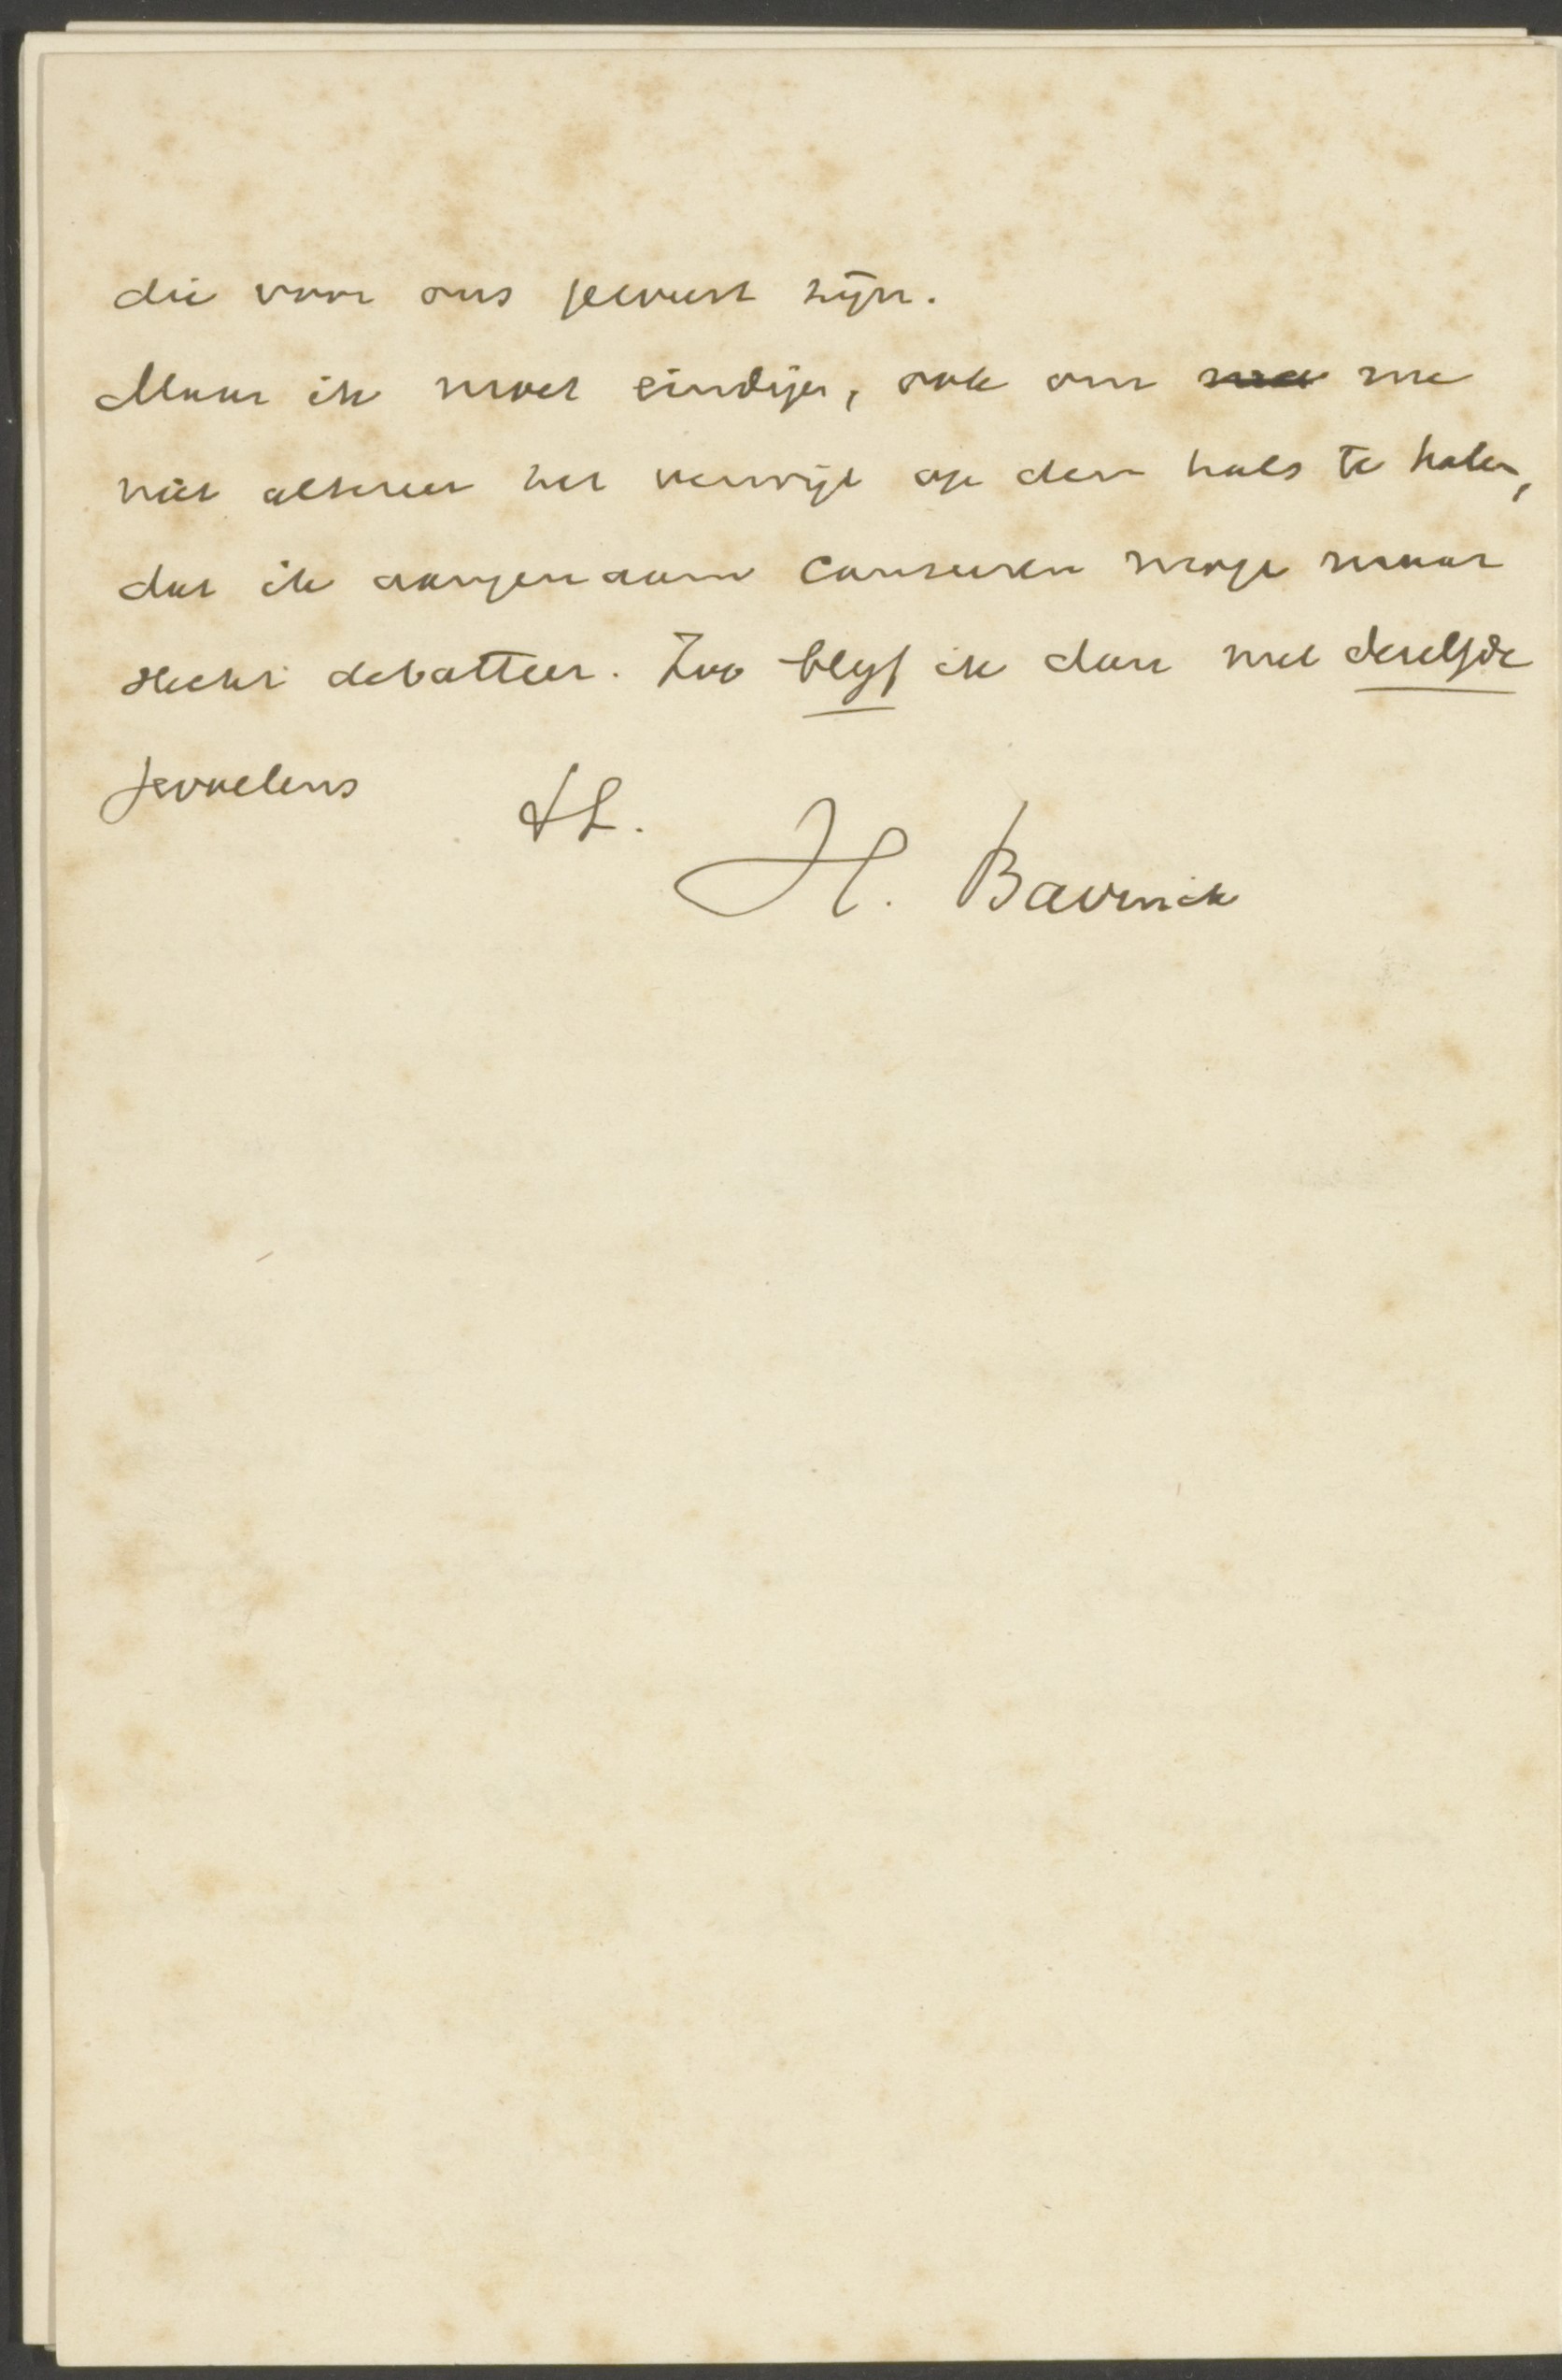 die voor ons geweest zijn.
Maar ik moet eindigen, ook om me
niet alweer het verwijt op den hals te halen,
dat ik aangenaam causeren moge maar
slecht debatteer. Zoo blijf ik dan met dezelfde
gevoelens
H. Bavinck